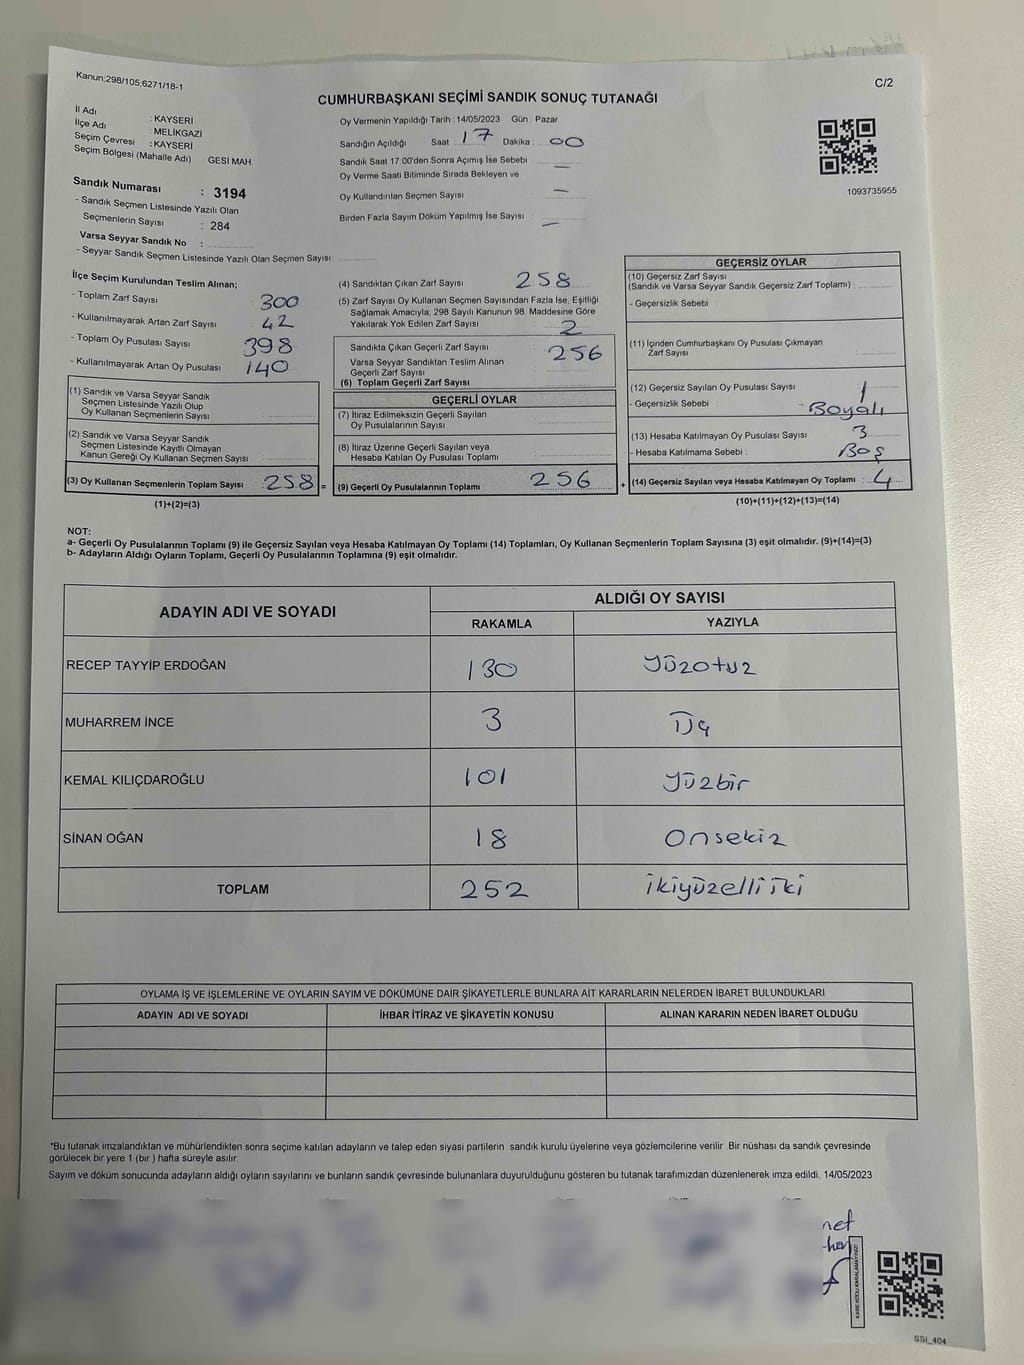 Kanun;298/105,6271/18-1
C/2
CUMHURBAŞKANI SEÇİMİ SANDIK SONUÇ TUTANAĞI
İl Adı : KAYSERİ
İlçe Adı : MELİKGAZİ
Seçim Çevresi : KAYSERİ
Seçim Bölgesi (Mahalle Adı) GESİ MAH
Sandık Numarası : 3194
- Sandık Seçmen Listesinde Yazılı Olan
Seçmenlerin Sayısı : 284
Varsa Seyyar Sandık No :
- Seyyar Sandık Seçmen Listesinde Yazılı Olan Seçmen Sayısı:
Oy Vermenin Yapıldığı Tarih : 14/05/2023 Gün : Pazar
Sandığın Açıldığı Saat 17 Dakika : 00
Sandık Saat 17:00'den Sonra Açımış İse Sebebi —
Oy Verme Saati Bitiminde Sırada Bekleyen ve
Oy Kullandırılan Seçmen Sayısı —
Birden Fazla Sayım Döküm Yapılmış İse Sayısı : —
1093735955
İlçe Seçim Kurulundan Teslim Alınan;
- Toplam Zarf Sayısı 300
- Kullanılmayarak Artan Zarf Sayısı 42
- Toplam Oy Pusulası Sayısı 398
- Kullanılmayarak Artan Oy Pusulası 140
(1) Sandık ve Varsa Seyyar Sandık
Seçmen Listesinde Yazılı Olup
Oy Kullanan Seçmenlerin Sayısı
(2) Sandık ve Varsa Seyyar Sandık
Seçmen Listesinde Kayıtlı Olmayan
Kanun Gereği Oy Kullanan Seçmen Sayısı
(3) Oy Kullanan Seçmenlerin Toplam Sayısı : 258 =
(1)+(2)=(3)
(4) Sandıktan Çıkan Zarf Sayısı 258
(5) Zarf Sayısı Oy Kullanan Seçmen Sayısından Fazla İse, Eşitliği
Sağlamak Amacıyla; 298 Sayılı Kanunun 98. Maddesine Göre
Yakılarak Yok Edilen Zarf Sayısı 2
Sandıkta Çıkan Geçerli Zarf Sayısı : 256
Varsa Seyyar Sandıktan Teslim Alınan
Geçerli Zarf Sayısı
(6) Toplam Geçerli Zarf Sayısı
GEÇERLİ OYLAR
(7) İtiraz Edilmeksizin Geçerli Sayılan
Oy Pusulalarının Sayısı
(8) İtiraz Üzerine Geçerli Sayılan veya
Hesaba Katılan Oy Pusulası Toplamı
(9) Geçerli Oy Pusulalarının Toplamı 256 +
GEÇERSİZ OYLAR
(10) Geçersiz Zarf Sayısı
(Sandık ve Varsa Seyyar Sandık Geçersiz Zarf Toplamı) :
- Geçersizlik Sebebi :
(11) İçinden Cumhurbaşkanı Oy Pusulası Çıkmayan
Zarf Sayısı :
(12) Geçersiz Sayılan Oy Pusulası Sayısı : 1
- Geçersizlik Sebebi : Boyalı
(13) Hesaba Katılmayan Oy Pusulası Sayısı : 3
- Hesaba Katılmama Sebebi : Boş
(14) Geçersiz Sayılan veya Hesaba Katılmayan Oy Toplamı : 4
(10)+(11)+(12)+(13)=(14)
NOT:
a- Geçerli Oy Pusulalarının Toplamı (9) ile Geçersiz Sayılan veya Hesaba Katılmayan Oy Toplamı (14) Toplamları, Oy Kullanan Seçmenlerin Toplam Sayısına (3) eşit olmalıdır. (9)+(14)=(3)
b- Adayların Aldığı Oyların Toplamı, Geçerli Oy Pusulalarının Toplamına (9) eşit olmalıdır.
ADAYIN ADI VE SOYADI ALDIĞI OY SAYISI
RAKAMLA YAZIYLA
RECEP TAYYİP ERDOĞAN 130 Yüzotuz
MUHARREM İNCE 3 Üç
KEMAL KILIÇDAROĞLU 101 Yüzbir
SİNAN OĞAN 18 Onsekiz
TOPLAM 252 İkiyüzelliiki
OYLAMA İŞ VE İŞLEMLERİNE VE OYLARIN SAYIM VE DÖKÜMÜNE DAİR ŞİKAYETLERLE BUNLARA AİT KARARLARIN NELERDEN İBARET BULUNDUKLARI
ADAYIN ADI VE SOYADI İHBAR İTİRAZ VE ŞİKAYETİN KONUSU ALINAN KARARIN NEDEN İBARET OLDUĞU
*Bu tutanak imzalandıktan ve mühürlendikten sonra seçime katılan adayların ve talep eden siyasi partilerin sandık kurulu üyelerine veya gözlemcilerine verilir. Bir nüshası da sandık çevresinde
görülecek bir yere 1 (bir ) hafta süreyle asılır.
Sayım ve döküm sonucunda adayların aldığı oyların sayılarını ve bunların sandık çevresinde bulunanlara duyurulduğunu gösteren bu tutanak tarafımızdan düzenlenerek imza edildi. 14/05/2023
net
KARE KODU KARALAMAYINIZ!
SSİ_404